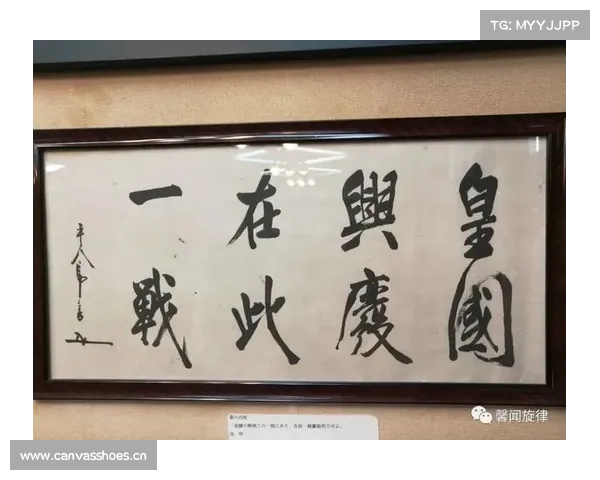 TG: MYYJJPP
皇國
興廢
在此
一戰
平八郎書
の興廢この一戦にあり、各員一層奮励努力せよ。
馨闻旋律
www.canvasshoes.cn